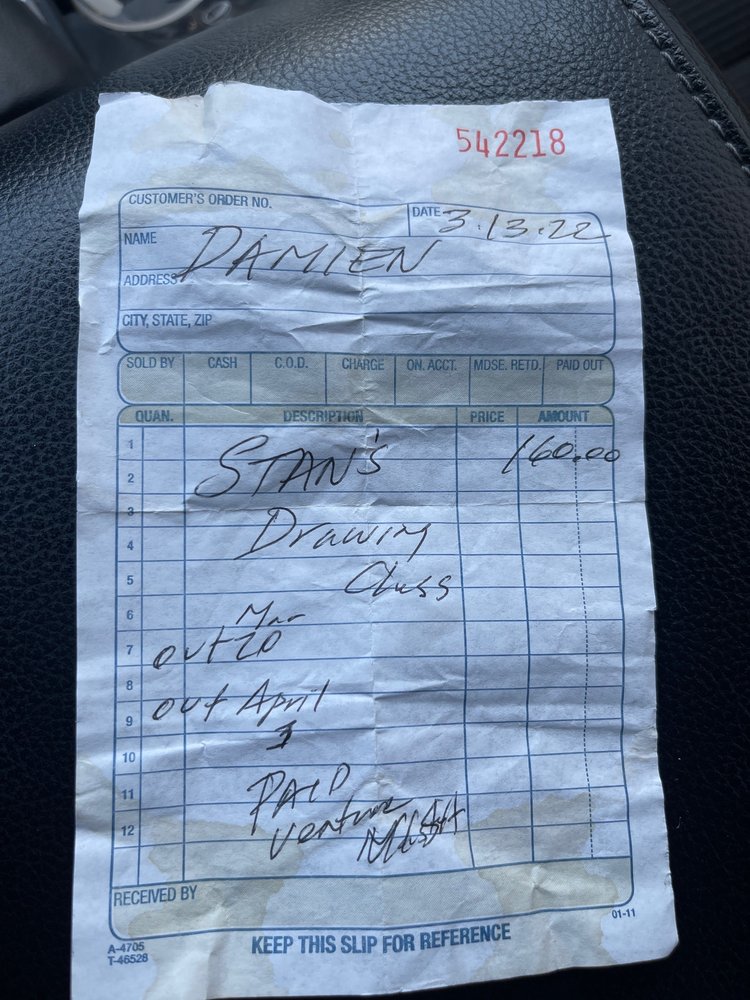 542218
CUSTOMER'S ORDER NO.
DATE 3.13.22
NAME DAMIEN
ADDRESS
CITY, STATE, ZIP
SOLD BY CASH C.O.D. CHARGE ON. ACCT. MDSE. RETD. PAID OUT
QUAN. DESCRIPTION PRICE AMOUNT
1
2 STAN'S 160.00
3
4 Drawing
5 Class
6 Mar
7 out 20
8
9 out April
10 3
11 PAID
12 venture
RECEIVED BY
01-11
A-4705
T-46528
KEEP THIS SLIP FOR REFERENCE